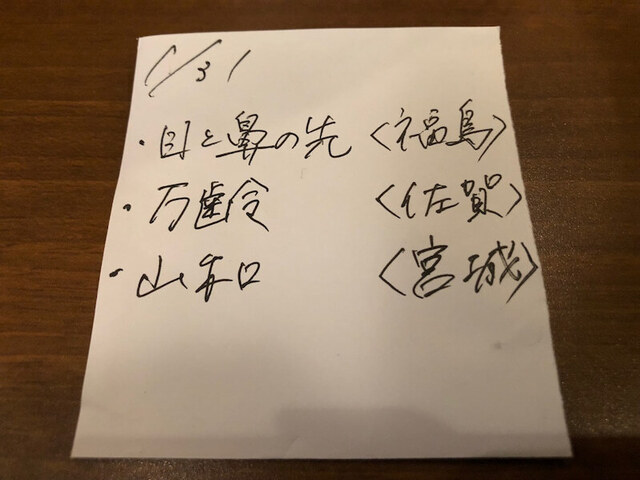 1/31
・目と鼻の先〈福島〉
・万齢〈佐賀〉
・山和〈宮城〉